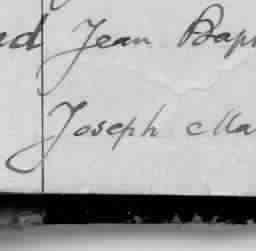 nd Jean Bap
Joseph Ma